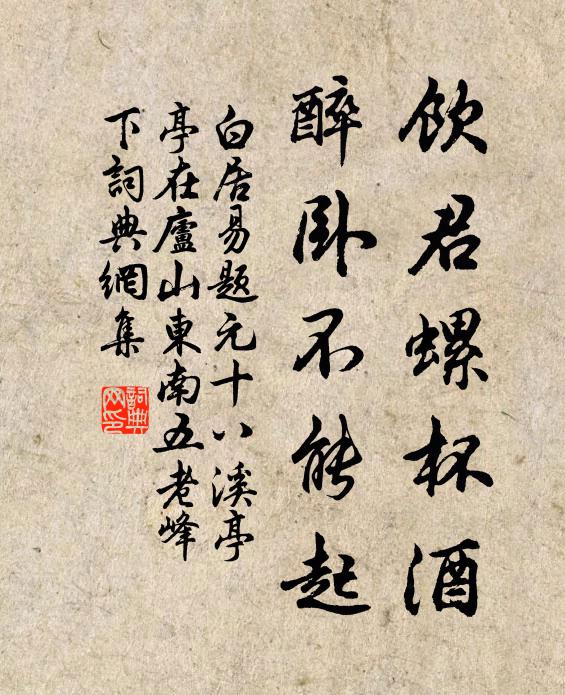 飲君螺杯酒
醉卧不能起
白居易题元十八溪亭
亭在廬山東南五老峰
下詞典網集
詞典网印